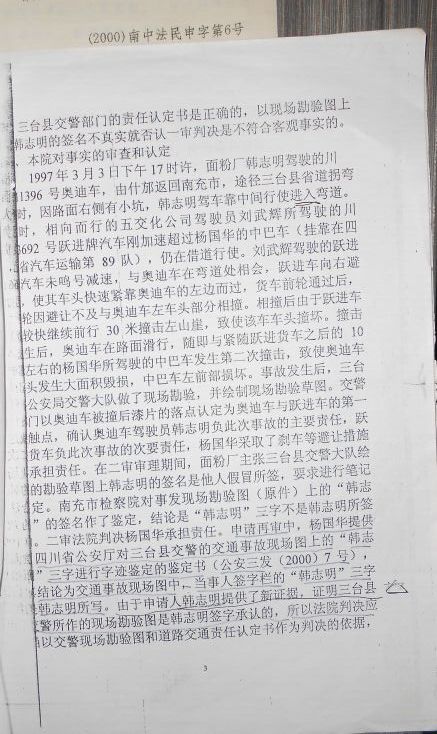 (2000)南中法民申字第6号
三台县交警部门的责任认定书是正确的，以现场勘验图上
韩志明的签名不真实就否认一审判决是不符合客观事实的。
、本院对事实的审查和认定
1997年3月3日下午17时许，面粉厂韩志明驾驶的川
1396号奥迪车，由什邡返回南充市，途径三台县省道拐弯
时，因路面右侧有小坑，韩志明驾车靠中间行使进入弯道。
时，相向而行的五交化公司驾驶员刘武辉所驾驶的川
3692号跃进牌汽车刚加速超过杨国华的中巴车（挂靠在四
省汽车运输第89队），仍在借道行使。刘武辉驾驶的跃进
汽车未鸣号减速，与奥迪车在弯道处相会，跃进车向右避
，使其车头快速紧靠奥迪车的左边而过，货车前轮通过后，
轮因避让不及与奥迪车左车头部分相撞。相撞后由于跃进车
较快继续前行30米撞击左山崖，致使该车车头撞坏。撞击
生后，奥迪车在路面滑行，随即与紧随跃进货车之后的10
左右的杨国华所驾驶的中巴车发生第二次撞击，致使奥迪车
头发生大面积毁损，中巴车左前部损坏。事故发生后，三台
公安局交警大队做了现场勘验，并绘制现场勘验草图。交警
门以奥迪车被撞后漆片的落点认定为奥迪车与跃进车的第一
触点，确认奥迪车驾驶员韩志明负此次事故的主要责任，跃
货车负此次事故的次要责任，杨国华采取了刹车等避让措施
承担责任。在二审审理期间，面粉厂主张三台县交警大队绘
的勘验草图上韩志明的签名是他人假冒所签，要求进行笔记
定。南充市检察院对事发现场勘验图（原件）上的“韩志
”的签名作了鉴定，结论是“韩志明”三字不是韩志明所签
。二审法院判决杨国华承担责任。申请再审中，杨国华提供
四川省公安厅对三台县交警的交通事故现场图上的“韩志
”三字进行字迹鉴定的鉴定书（公安三发（2000）7号），
结论为交通事故现场图中，当事人签字栏的“韩志明”三字
韩志明所写。由于申请人韩志明提供了新证据，证明三台县
警所作的现场勘验图是韩志明签字承认的，所以法院判决应
以交警现场勘验图和道路交通责任认定书作为判决的依据，
3